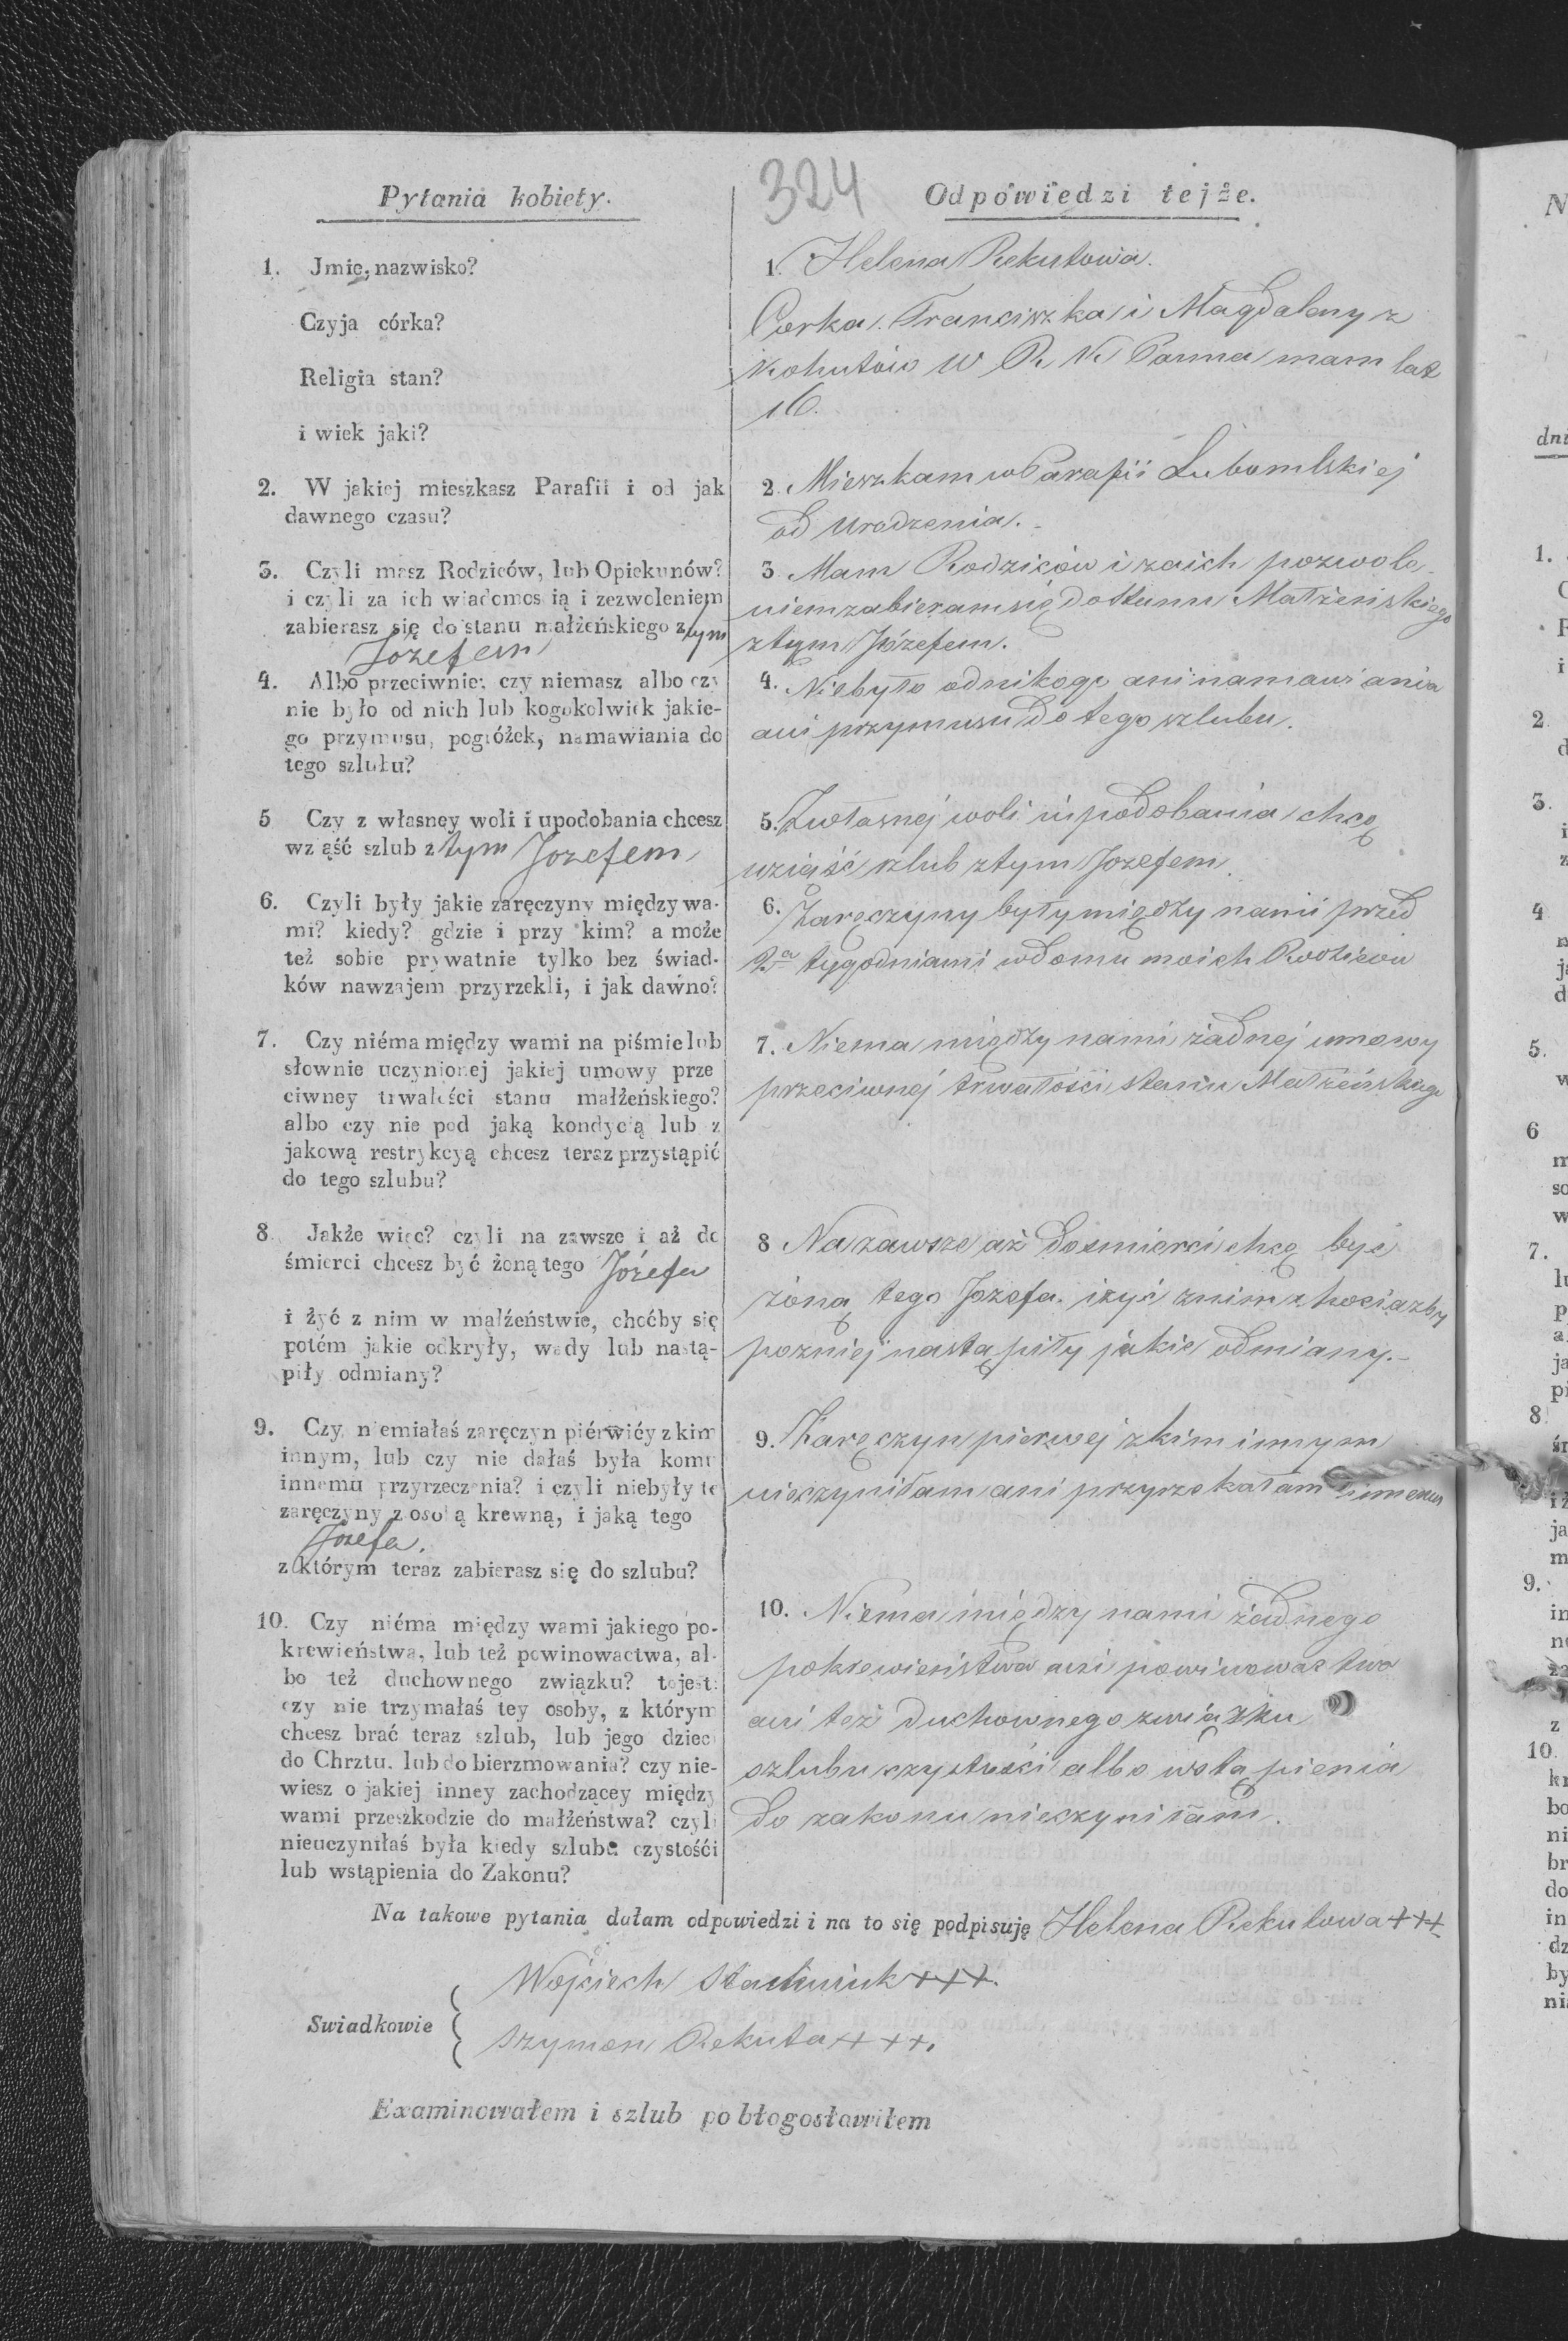 324
Pytania kobiety.
Odpowiedzi tejże.
1. Jmie, nazwisko?
Czyja córka?
Religia stan?
i wiek jaki?
1. Helena Rekutowa.
Corka Franciszka i Magdaleny z
Kohutów W R. K. Panna mam lat
16.
2. W jakiej mieszkasz Parafii i od jak
dawnego czasu?
2. Mieszkam w Parafii Lubomlskiej
od urodzenia.
3. Czyli masz Rodziców, lub Opiekunów?
i czyli za ich wiadomością i zezwoleniem
zabierasz się do stanu małżeńskiego z tym
Jozefem
3 Mam Rodziców i za ich pozwole-
niem zabieram się do stanu Małżeńskiego
z tym Józefem.
4. Albo przeciwnie: czy niemasz albo czy
nie było od nich lub kogokolwiek jakie-
go przymusu, pogróżek, namawiania do
tego szlubu?
4. Niebyło od nikogo ani namawiania
ani przymusu do tego szlubu.
5 Czy z własney woli i upodobania chcesz
wziąść szlub z tym Jozefem
5. Zwłasnej woli i upodobania chcę
wziąść szlub ztym Jozefem.
6. Czyli były jakie zaręczyny między wa-
mi? kiedy? gdzie i przy kim? a może
też sobie prywatnie tylko bez świad-
ków nawzajem przyrzekli, i jak dawno?
6. Zaręczyny były między nami przed
2a tygodniami w domu moich Rodziców
7. Czy niéma między wami na piśmie lub
słownie uczynionej jakiej umowy prze
ciwney trwałości stanu małżeńskiego?
albo czy nie pod jaką kondycią lub z
jakową restrykcyą chcesz teraz przystąpić
do tego szlubu?
7. Niema między nami żadnej umowy
przeciwnej trwałości stanu Małżeńskiego
8. Jakże więc? czyli na zawsze i aż do
śmierci chcesz być żoną tego Józefa
i żyć z nim w małżeństwie, choćby się
potém jakie odkryły, wady lub nastą-
piły odmiany?
8 Na zawsze aż do smierci chcę być
żoną tego Jozefa i żyć z nim chociażby
pozniej nastąpiły jakie odmiany.-
9. Czy niemiałaś zaręczyn piérwiéy z kim
innym, lub czy nie dałaś była komu
innemu przyrzeczenia? i czyli niebyły te
zaręczyny z osobą krewną, i jaką tego
Jozefa.
z którym teraz zabierasz się do szlubu?
9. Zaręczyn pierwej z kim innym
nieczyniłam ani przyrzekałam innemu
10. Czy niéma między wami jakiego po-
krewieństwa, lub też powinowactwa, al-
bo też duchownego związku? to jest:
czy nie trzymałaś tey osoby, z którym
chcesz brać teraz szlub, lub jego dzieci
do Chrztu, lub do bierzmowania? czy nie-
wiesz o jakiej inney zachodzącey między
wami przeszkodzie do małżeństwa? czyli
nieuczyniłaś była kiedy szlubu czystośći
lub wstąpienia do Zakonu?
10. Niema między nami żadnego
pokrewieństwa ani powinowactwa
ani też duchownego związku
szlubu czystości albo wstąpienia
do zakonu nieczyniłam.
Na takowe pytania dałam odpowiedzi i na to się podpisuję Helena Rekutowa +++
Swiadkowie
Wojciech Stachniuk +++.
Szymon Rekuta +++.
Examinowałem i szlub pobłogosławiłem